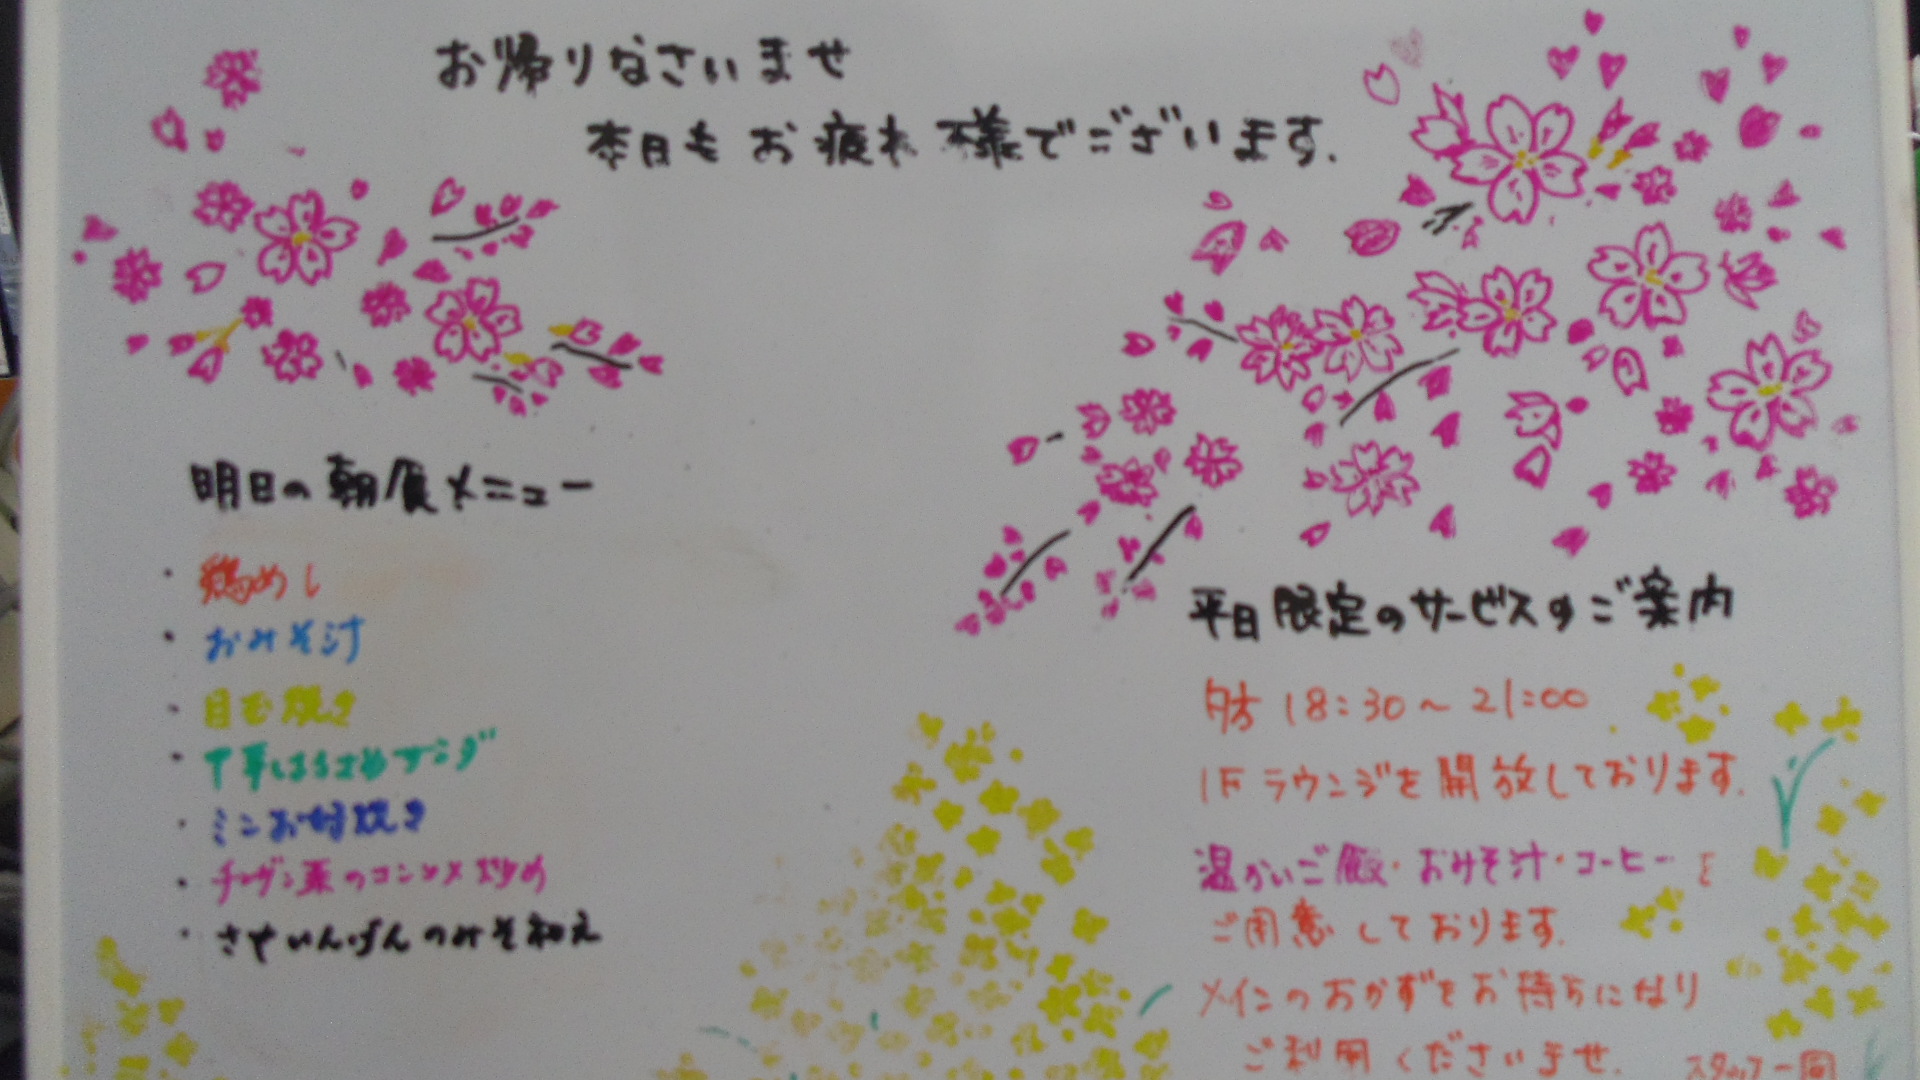 お帰りなさいませ
本日もお疲れ様でございます.
明日の朝食メニュー
・鶏めし
・おみそ汁
・目玉焼き
・中華はるさめサラダ
・ミニお好焼き
・チンゲン菜のコンソメ炒め
・さやいんげんのみそ和え
平日限定のサービスのご案内
夕方 18:30～21:00
1Fラウンジを開放しております.
温かいご飯・おみそ汁・コーヒーを
ご用意しております.
メインのおかずをお持ちになり
ご利用くださいませ.
スタッフ一同